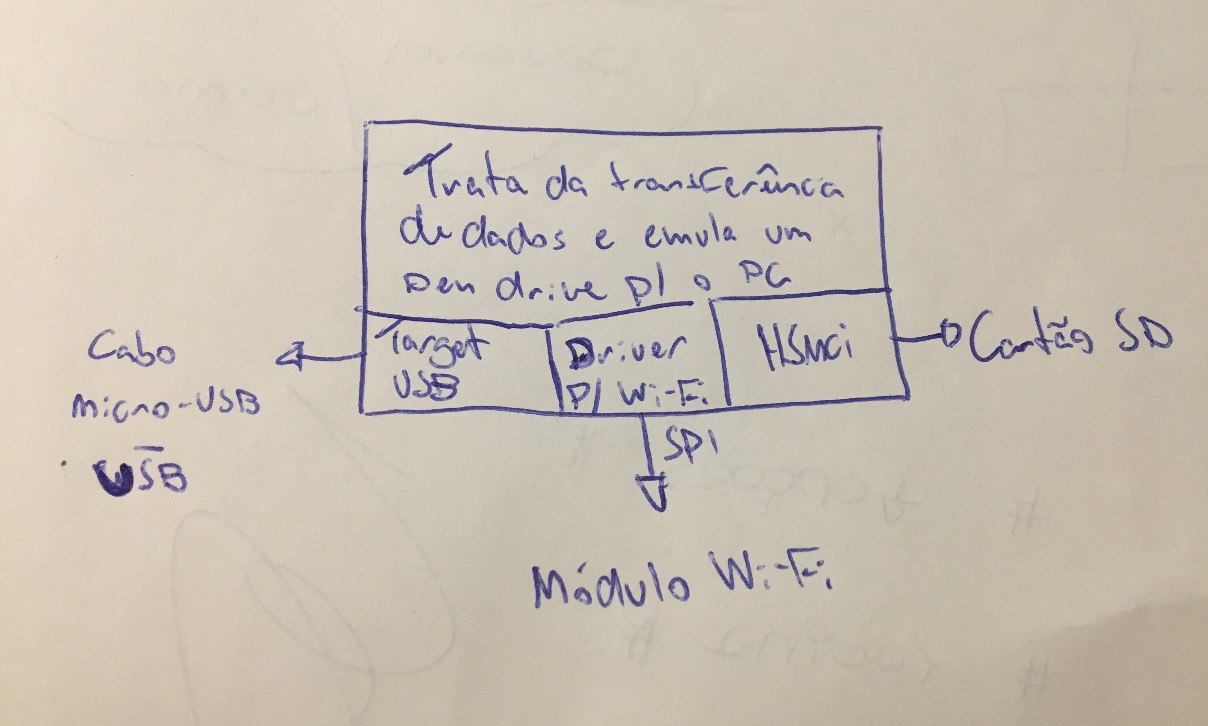 Trata da transferência
de dados e emula um
Pen drive p/ o PC
Target
USB
Driver
P/ Wi-Fi
HSMCi
Cabo
Micro-USB
USB
Cartão SD
SPI
Módulo Wi-Fi